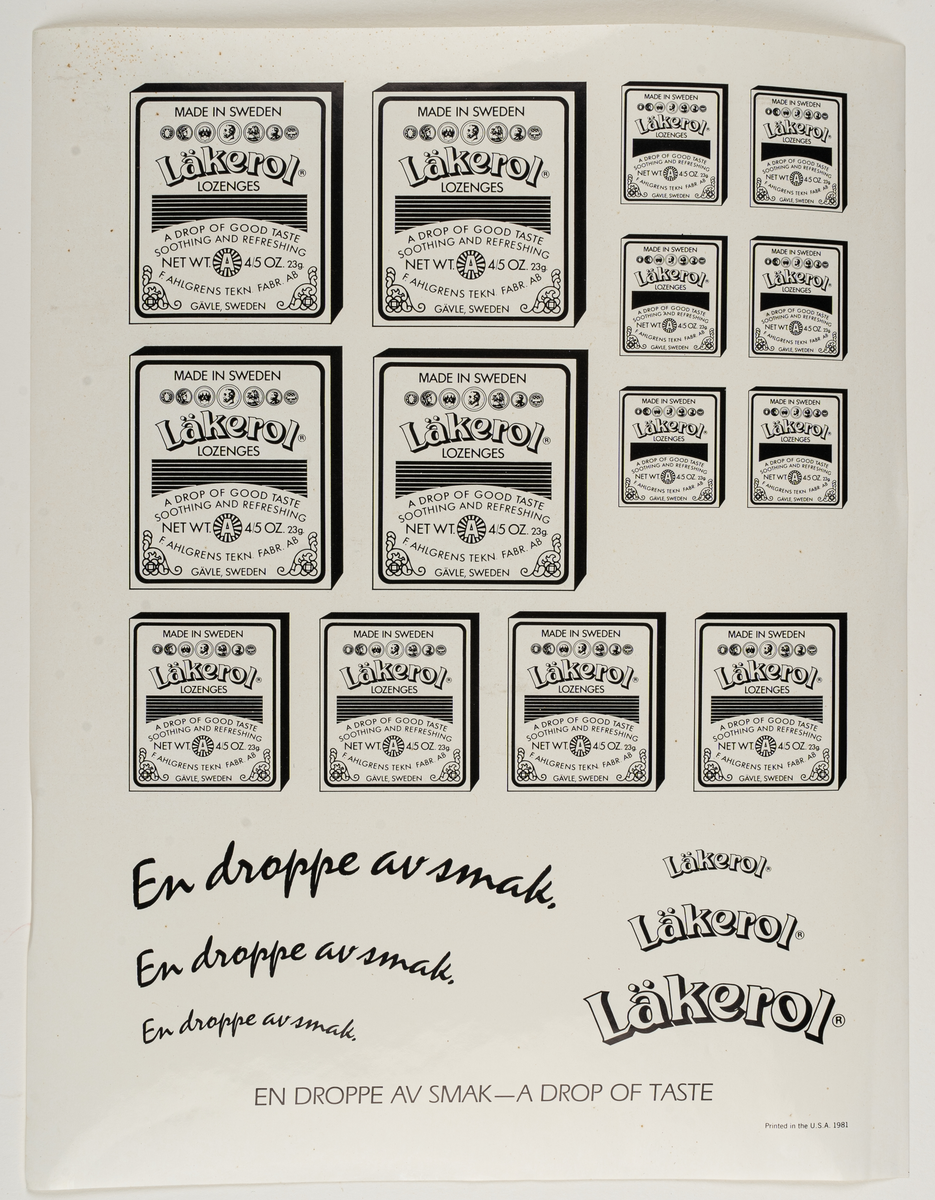 MADE IN SWEDEN
Läkerol®
LOZENGES
A DROP OF GOOD TASTE
SOOTHING AND REFRESHING
NET WT. A 4/5 OZ. 23g
F. AHLGRENS TEKN. FABR. AB
GÄVLE, SWEDEN
MADE IN SWEDEN
Läkerol®
LOZENGES
A DROP OF GOOD TASTE
SOOTHING AND REFRESHING
NET WT. A 4/5 OZ. 23g
F. AHLGRENS TEKN. FABR. AB
GÄVLE, SWEDEN
MADE IN SWEDEN
Läkerol®
LOZENGES
A DROP OF GOOD TASTE
SOOTHING AND REFRESHING
NET WT. A 4/5 OZ. 23g
F. AHLGRENS TEKN. FABR. AB
GÄVLE, SWEDEN
MADE IN SWEDEN
Läkerol®
LOZENGES
A DROP OF GOOD TASTE
SOOTHING AND REFRESHING
NET WT. A 4/5 OZ. 23g
F. AHLGRENS TEKN. FABR. AB
GÄVLE, SWEDEN
MADE IN SWEDEN
Läkerol®
LOZENGES
A DROP OF GOOD TASTE
SOOTHING AND REFRESHING
NET WT. A 4/5 OZ. 23g
F. AHLGRENS TEKN. FABR. AB
GÄVLE, SWEDEN
MADE IN SWEDEN
Läkerol®
LOZENGES
A DROP OF GOOD TASTE
SOOTHING AND REFRESHING
NET WT. A 4/5 OZ. 23g
F. AHLGRENS TEKN. FABR. AB
GÄVLE, SWEDEN
MADE IN SWEDEN
Läkerol®
LOZENGES
A DROP OF GOOD TASTE
SOOTHING AND REFRESHING
NET WT. A 4/5 OZ. 23g
F. AHLGRENS TEKN. FABR. AB
GÄVLE, SWEDEN
MADE IN SWEDEN
Läkerol®
LOZENGES
A DROP OF GOOD TASTE
SOOTHING AND REFRESHING
NET WT. A 4/5 OZ. 23g
F. AHLGRENS TEKN. FABR. AB
GÄVLE, SWEDEN
MADE IN SWEDEN
Läkerol®
LOZENGES
A DROP OF GOOD TASTE
SOOTHING AND REFRESHING
NET WT. A 4/5 OZ. 23g
F. AHLGRENS TEKN. FABR. AB
GÄVLE, SWEDEN
MADE IN SWEDEN
Läkerol®
LOZENGES
A DROP OF GOOD TASTE
SOOTHING AND REFRESHING
NET WT. A 4/5 OZ. 23g
F. AHLGRENS TEKN. FABR. AB
GÄVLE, SWEDEN
MADE IN SWEDEN
Läkerol®
LOZENGES
A DROP OF GOOD TASTE
SOOTHING AND REFRESHING
NET WT. A 4/5 OZ. 23g
F. AHLGRENS TEKN. FABR. AB
GÄVLE, SWEDEN
MADE IN SWEDEN
Läkerol®
LOZENGES
A DROP OF GOOD TASTE
SOOTHING AND REFRESHING
NET WT. A 4/5 OZ. 23g
F. AHLGRENS TEKN. FABR. AB
GÄVLE, SWEDEN
MADE IN SWEDEN
Läkerol®
LOZENGES
A DROP OF GOOD TASTE
SOOTHING AND REFRESHING
NET WT. A 4/5 OZ. 23g
F. AHLGRENS TEKN. FABR. AB
GÄVLE, SWEDEN
MADE IN SWEDEN
Läkerol®
LOZENGES
A DROP OF GOOD TASTE
SOOTHING AND REFRESHING
NET WT. A 4/5 OZ. 23g
F. AHLGRENS TEKN. FABR. AB
GÄVLE, SWEDEN
En droppe av smak.
En droppe av smak.
En droppe av smak.
Läkerol®
Läkerol®
Läkerol®
EN DROPPE AV SMAK—A DROP OF TASTE
Printed in the U.S.A. 1981